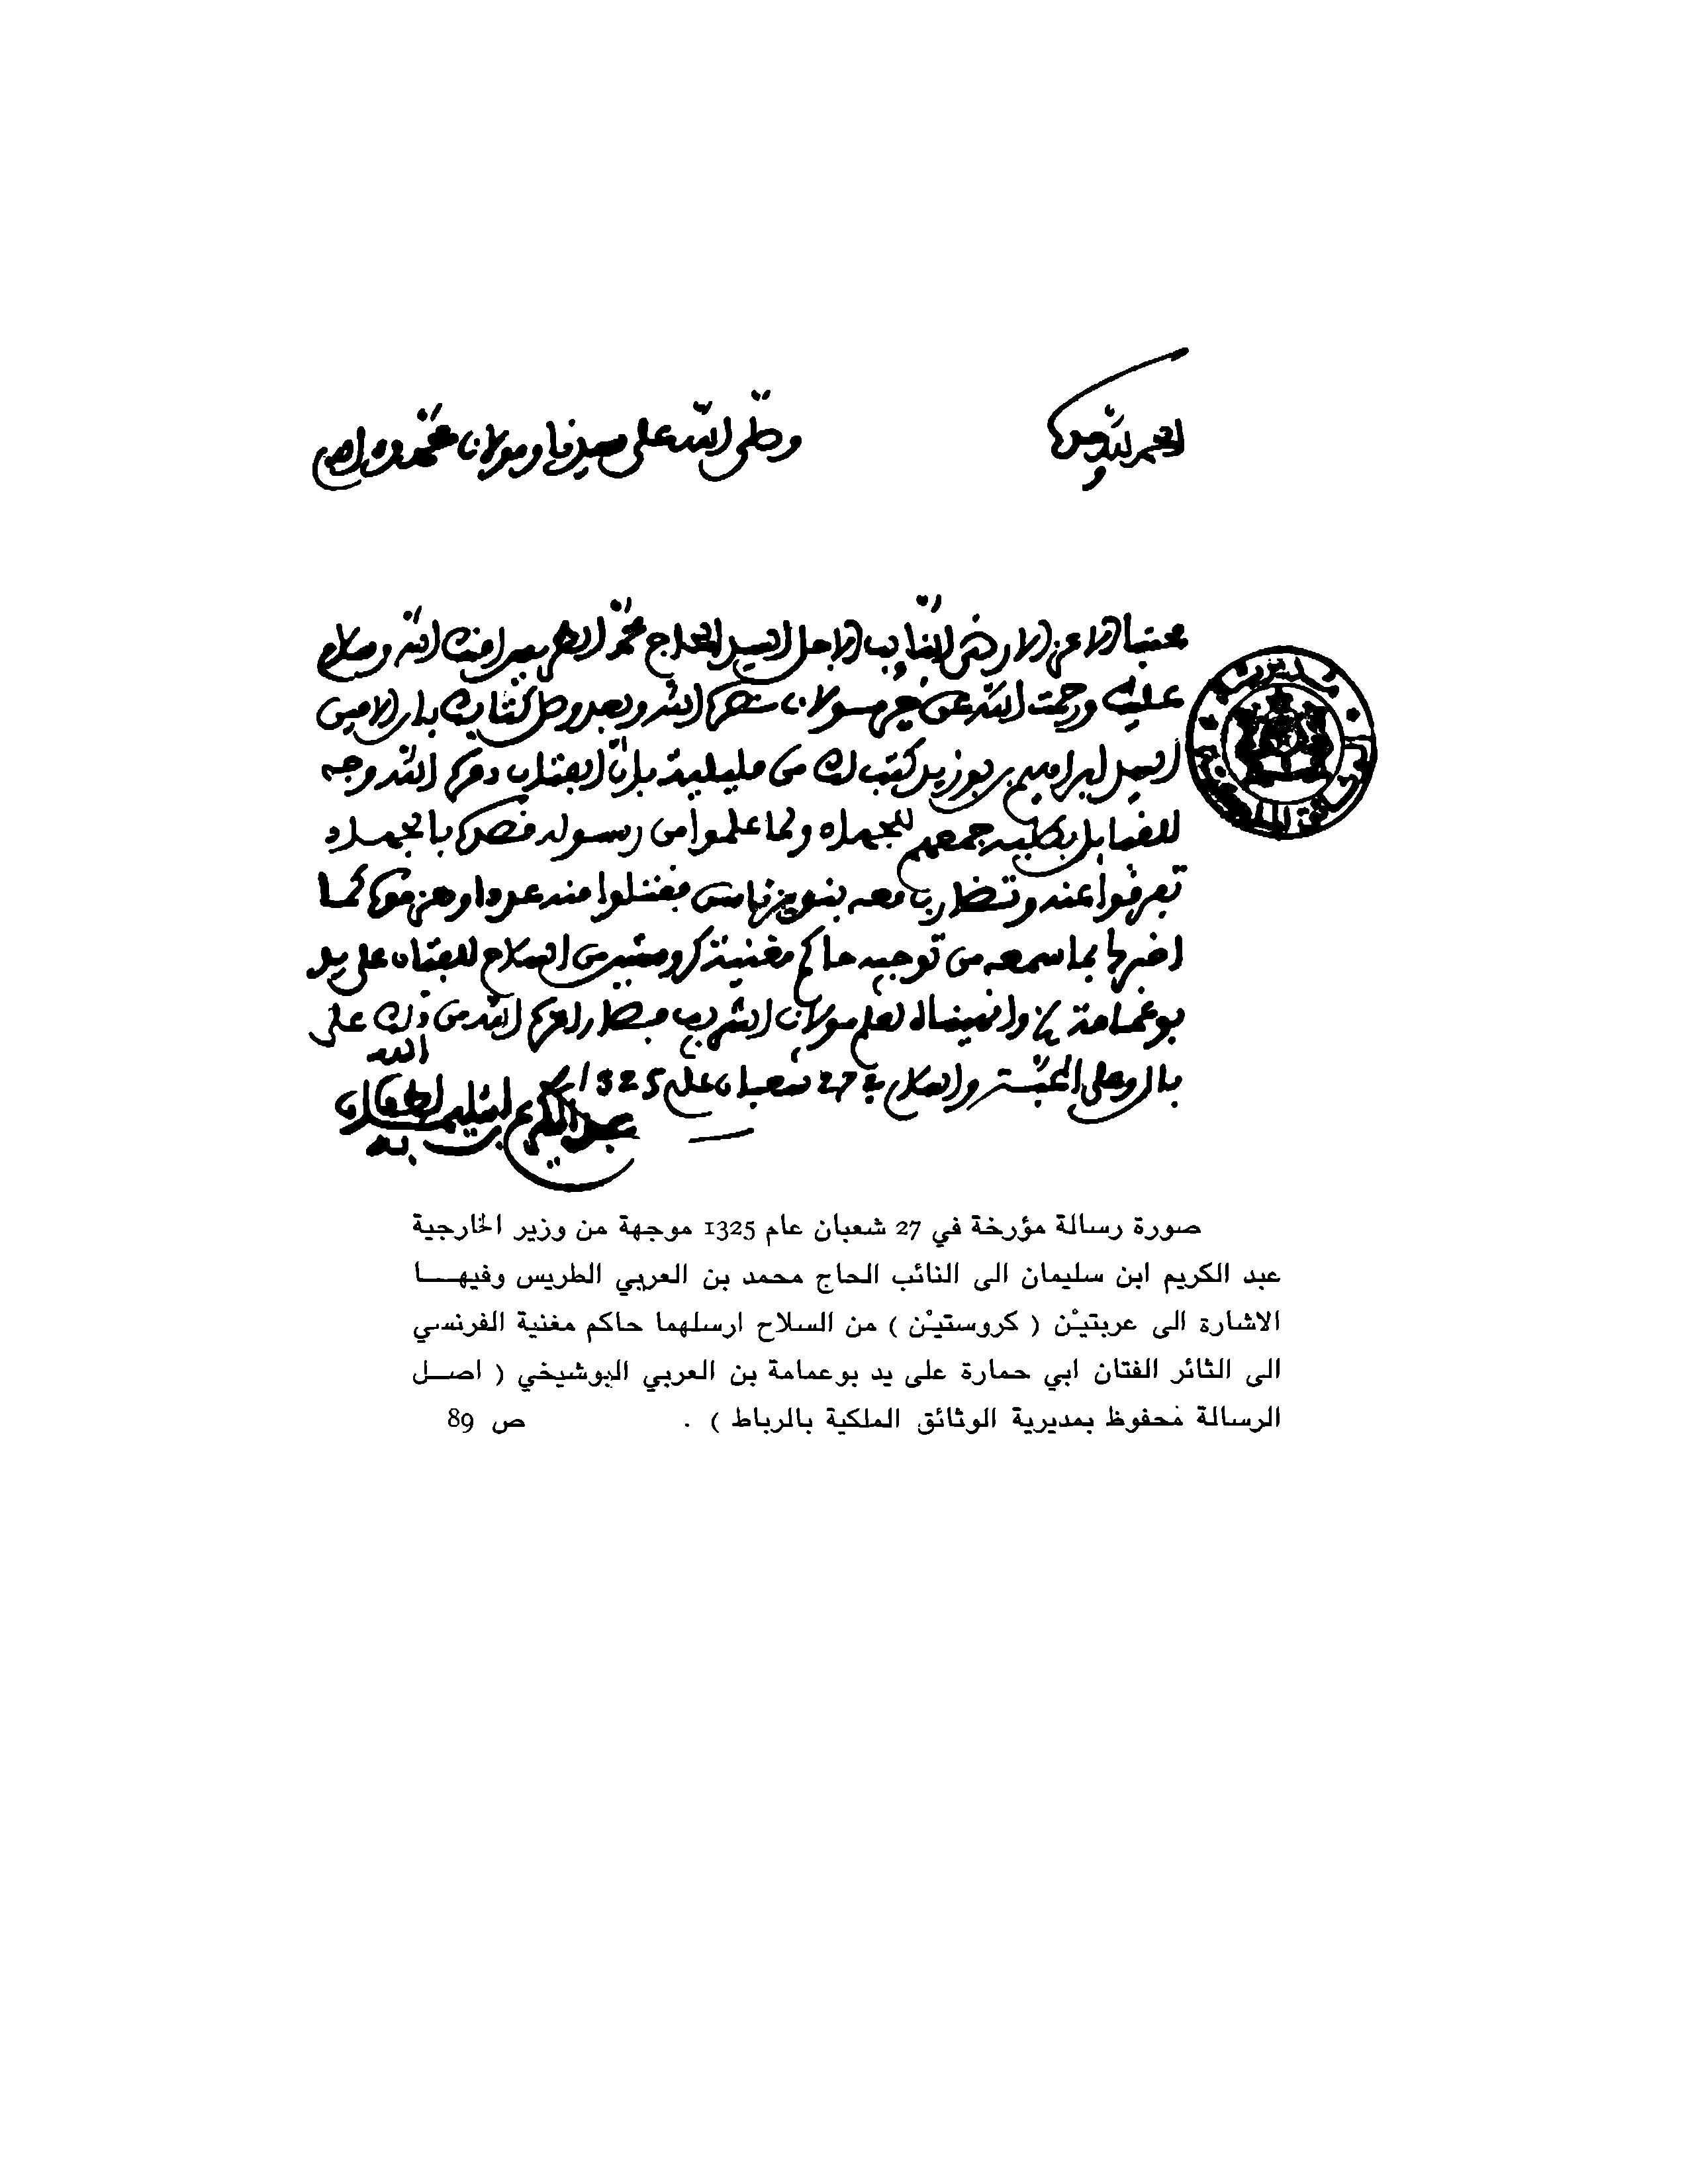 الحمد لله وحده
وصلى الله على سيدنا ومولانا محمد وءاله
محبنا الاعز الارضى النائب الاجل السيد الحاج محمد الطريس امنك الله وسلام
عليك ورحمت الله عن خير مولانا نصره الله وبعد وصل كتابك بان الامين
السيد ابراهيم بن بوزيد كتب لك من مليلية بان الفتان دمره الله وجه
للقبايل بطلب جمعهم للجهاد ولما علموا من رسوله قصره بالجهاد
تفرقوا عنه وتضارب معه بنو يزناسن فقتلوا منه عددا وهزموه كما
اخبر بما سمعه من توجيه حاكم مغنية كروستين من السلاح للفتان على يد
بوعمامة وانهيناه لعلم مولانا الشريف فصار اعزه الله من ذلك على
بال وعلى المحبة والسلام في 27 شعبان عام 1325
عبد الكريم بن سليمان لطف الله به
صورة رسالة مؤرخة في 27 شعبان عام 1325 موجهة من وزير الخارجية
عبد الكريم ابن سليمان الى النائب الحاج محمد بن العربي الطريس وفيهـــا
الاشارة الى عربتيْن ( كروستيْن ) من السلاح ارسلهما حاكم مغنية الفرنسي
الى الثائر الفتان ابي حمارة على يد بوعمامة بن العربي البوشيخي ( اصـــل
الرسالة مَحفوظ بمديرية الوثائق الملكية بالرباط ) . ص 89